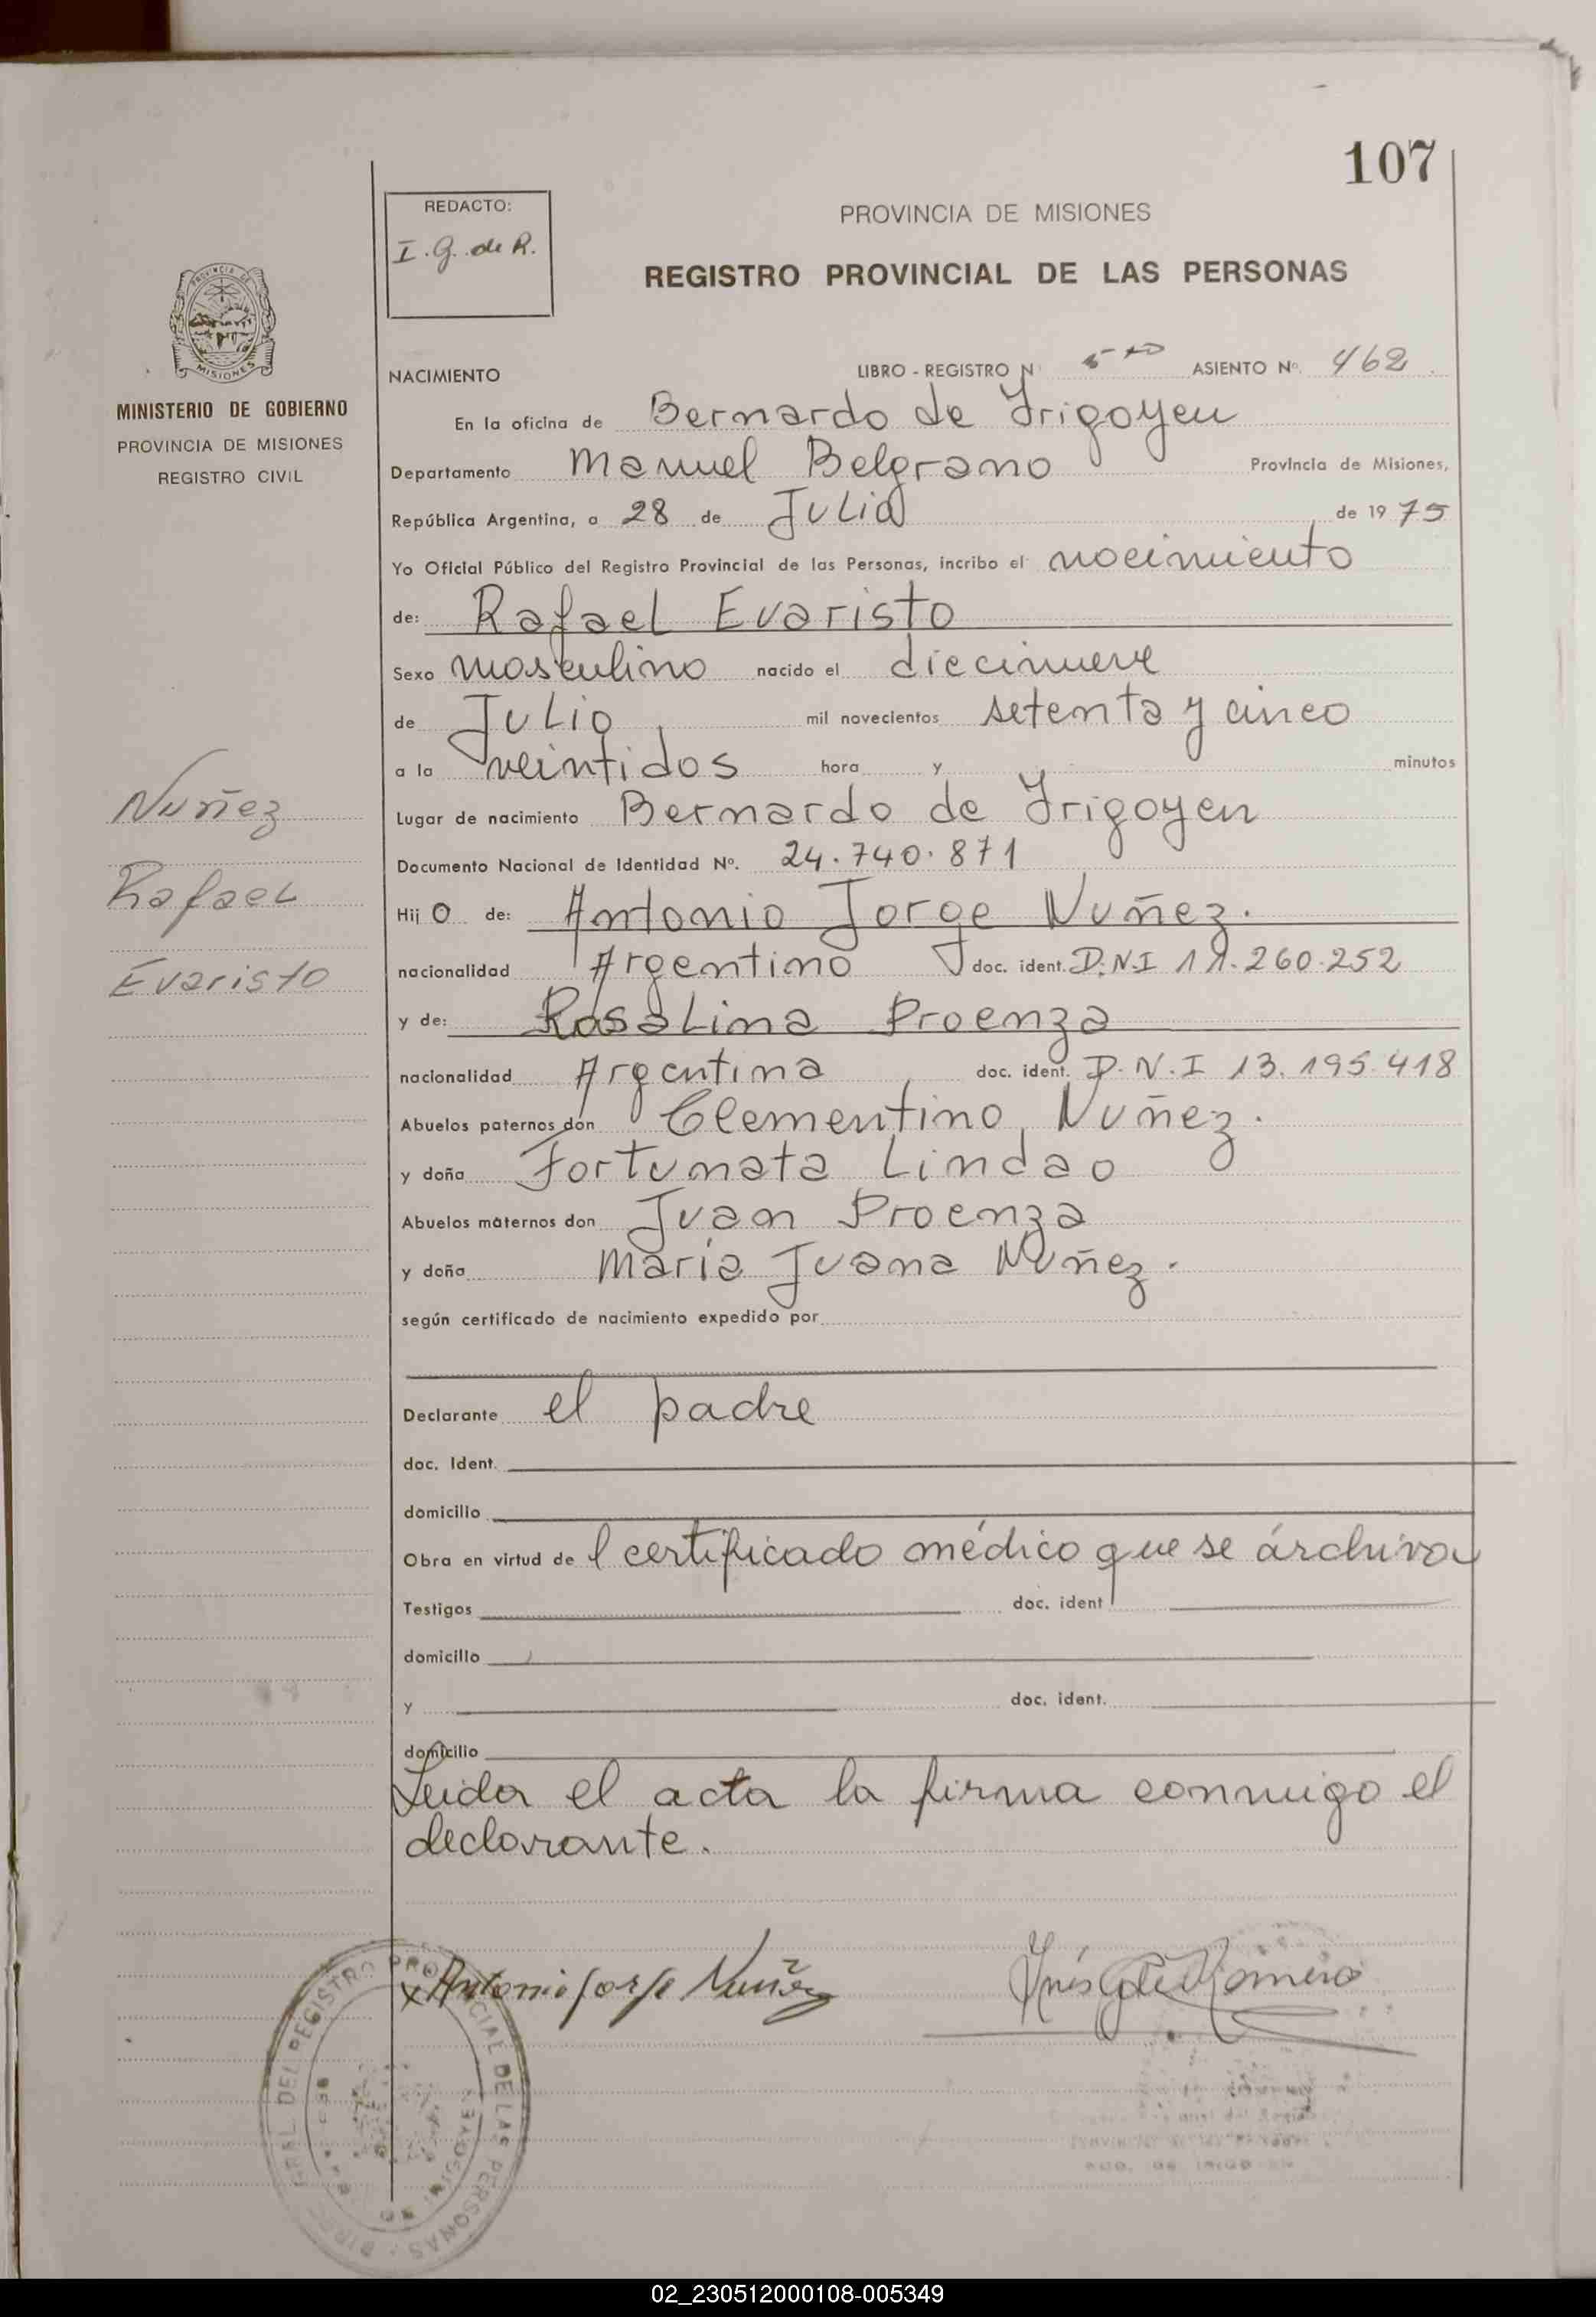 107
REDACTO:
I. G. de R.
PROVINCIA DE MISIONES
REGISTRO PROVINCIAL DE LAS PERSONAS
PROVINCIA DE
MISIONES
MINISTERIO DE GOBIERNO
PROVINCIA DE MISIONES
REGISTRO CIVIL
NACIMIENTO LIBRO - REGISTRO N 5to ASIENTO Nº. 462
En la oficina de Bernardo de Irigoyen
Departamento Manuel Belgrano Provincia de Misiones,
República Argentina, a 28 de Julio de 1975
Yo Oficial Público del Registro Provincial de las Personas, incribo el nacimiento
de: Rafael Evaristo
Sexo masculino nacido el diecinueve
de Julio mil novecientos setenta y cinco
a la veintidos hora y minutos
Nuñez
Rafael
Evaristo
Lugar de nacimiento Bernardo de Irigoyen
Documento Nacional de Identidad Nº. 24.740.871
Hij o de: Antonio Jorge Nuñez.
nacionalidad Argentino doc. ident. D.N.I 11.260.252
y de: Rosalina Proenza
nacionalidad Argentina doc. ident. D.N.I 13.195.418
Abuelos paternos don Clementino Nuñez.
y doña Fortunata Lindao
Abuelos maternos don Juan Proenza
y doña María Juana Nuñez.
según certificado de nacimiento expedido por
Declarante el padre
doc. Ident.
domicilio
Obra en virtud de l certificado médico que se árchiva
Testigos doc. ident
domicilio
y doc. ident.
domicilio
Leida el acta la firma conmigo el
declarante.
x Antonio Jorge Nuñez
Inés G de Romero
GRAL. DEL REGISTRO PROVINCIAL DE LAS PERSONAS
02_230512000108-005349